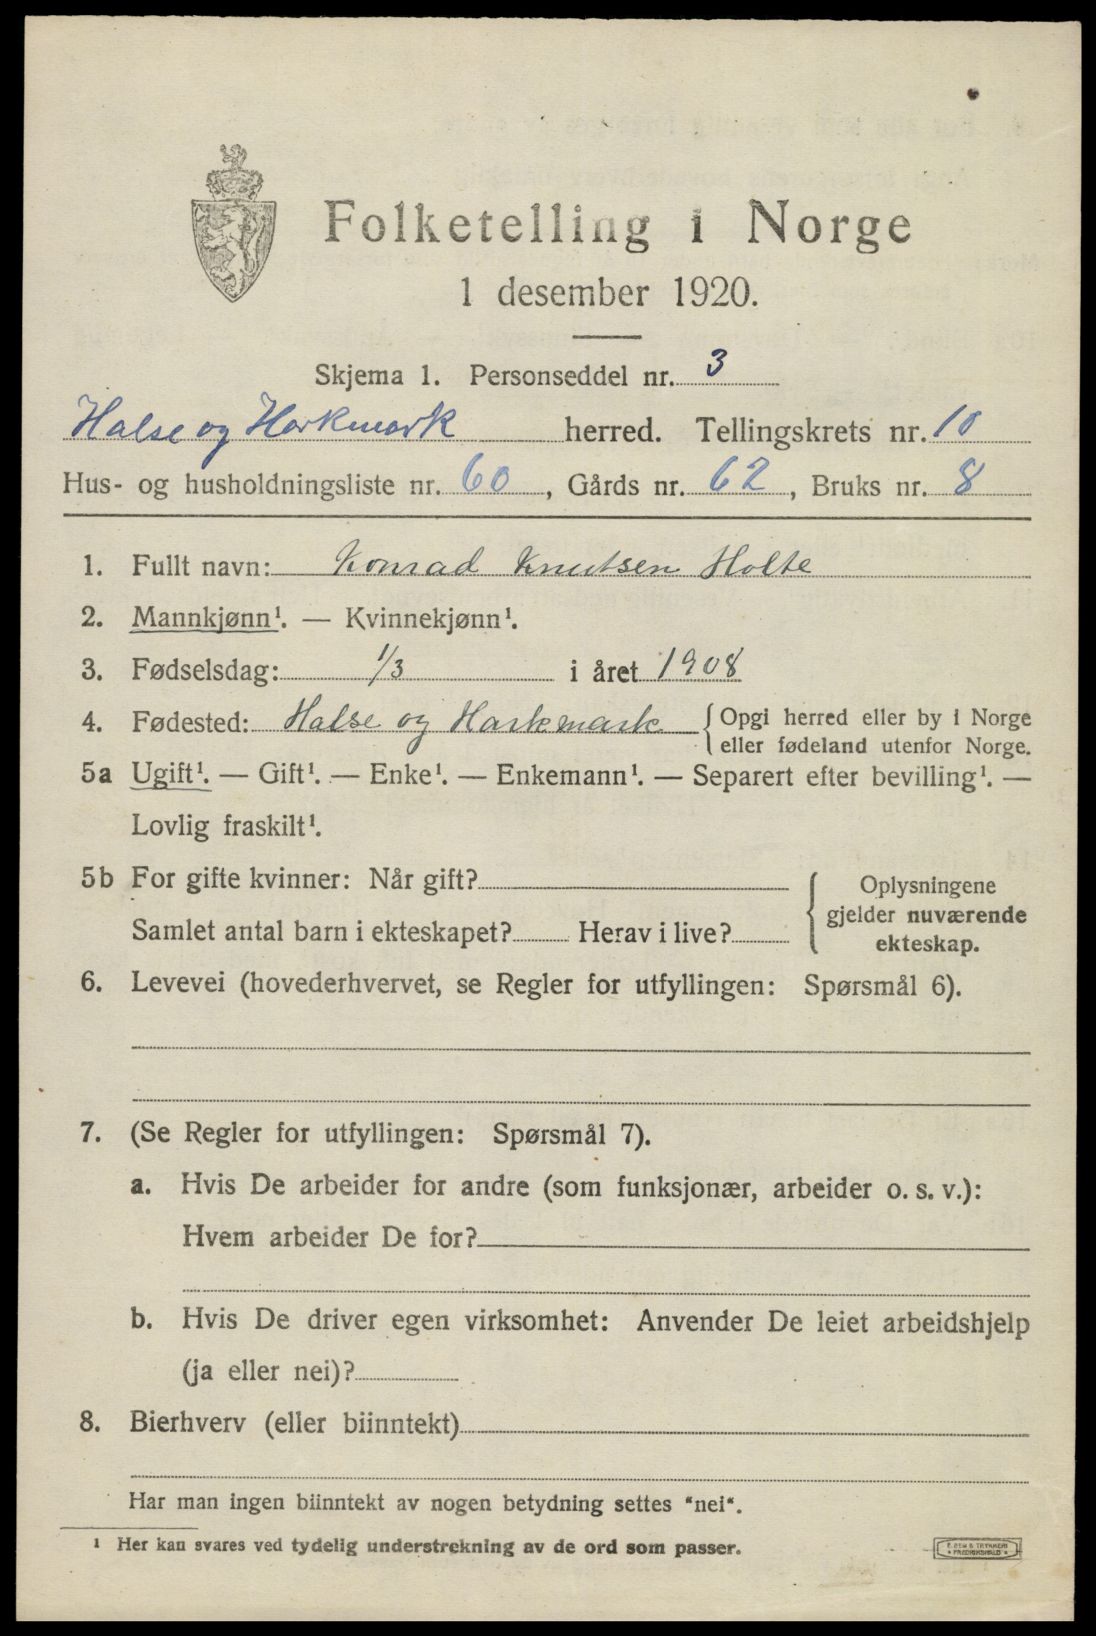 Folketelling i Norge
1 desember 1920.
Skjema 1. Personseddel nr. 3
Halse og Harkmark herred. Tellingskrets nr. 10
Hus- og husholdningsliste nr. 60, Gårds nr. 62, Bruks nr. 8
1. Fullt navn: Konrad Knutsen Holte
2. Mannkjønn¹. — Kvinnekjønn¹.
3. Fødselsdag: 1/3 i året 1908
4. Fødested: Halse og Harkmark { Opgi herred eller by i Norge
eller fødeland utenfor Norge.
5a Ugift¹. — Gift¹. — Enke¹. — Enkemann¹. — Separert efter bevilling¹. —
Lovlig fraskilt¹.
5b For gifte kvinner: Når gift?
Samlet antal barn i ekteskapet? Herav i live?
{ Oplysningene
gjelder nuværende
ekteskap.
6. Levevei (hovederhvervet, se Regler for utfyllingen: Spørsmål 6).
7. (Se Regler for utfyllingen: Spørsmål 7).
a. Hvis De arbeider for andre (som funksjonær, arbeider o. s. v.):
Hvem arbeider De for?
b. Hvis De driver egen virksomhet: Anvender De leiet arbeidshjelp
(ja eller nei)?
8. Bierhverv (eller biinntekt)
Har man ingen biinntekt av nogen betydning settes "nei".
¹ Her kan svares ved tydelig understrekning av de ord som passer.